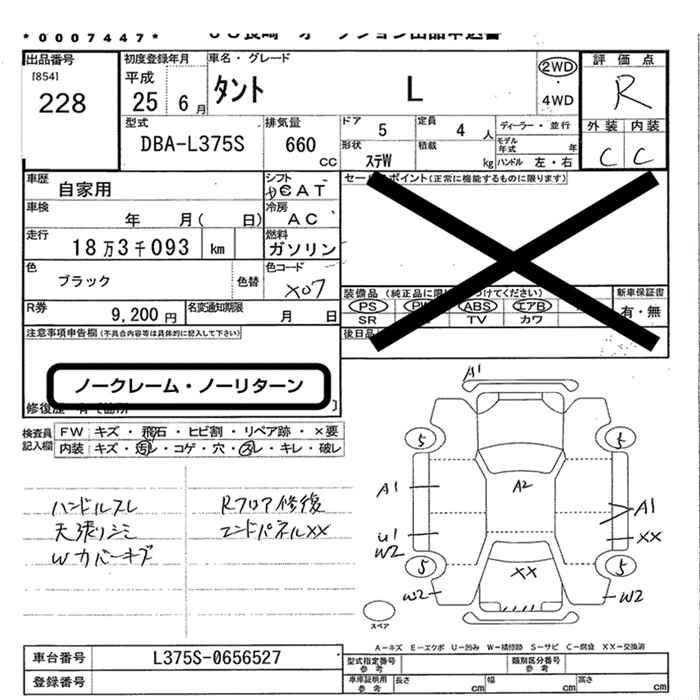 *0007447*
JU長崎 オークション出品申込書
出品番号
[854]
228
初度登録年月
平成
25 6月
車名・グレード
タント L
2WD
・
4WD
評価点
R
外装 内装
C C
型式
DBA-L375S
排気量
660
cc
ドア
5
定員
4 人
ディーラー・並行
モデル年式 年
形状
ステW
積載
kg
ハンドル 左・右
車歴
自家用
シフト
CAT
車検
年 月( 日)
冷房
AC
走行
18万3千093 km
燃料
ガソリン
色
ブラック
色替
色コード
X07
R券
9,200 円
名変通知期限
月 日
セールスポイント(正常に機能するものに限ります)
装備品(純正品に限
つけてください)
PS PW ABS エアB
SR TV カワ
新車保証書
有・無
後日品
注意事項申告欄(不具合内容等は具体的に記入して下さい)
ノークレーム・ノーリターン
修復歴
検査員
記入欄
FW キズ・飛石・ヒビ割・リペア跡・×要
内装 キズ・汚レ・コゲ・穴・スレ・キレ・破レ
ハンドルスレ
天張りシミ
Wカバーキズ
Rフロア修復
エンドパネルXX
A1
5 5
A1 A2 A1
U1 XX
W2
5 XX 5
W2 W2
スペア
A-キズ E-エクボ U-凹み W-補修跡 S-サビ C-腐食 XX-交換済
車台番号
L375S-0656527
登録番号
型式指定番号
参考
類別区分番号
参考
車庫証明用
参考
長さ cm 幅 cm 高さ cm